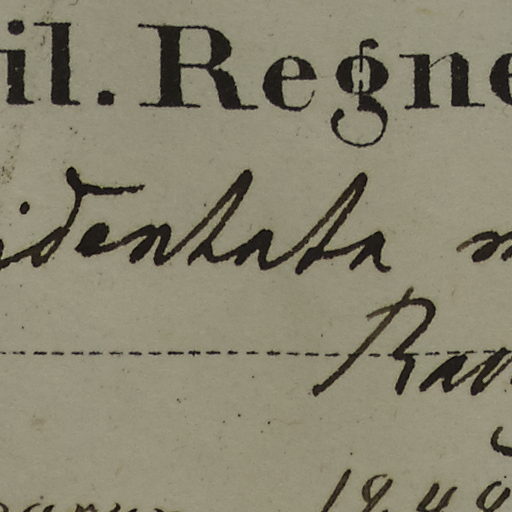 il. Regne
identata n
Rav
18 49